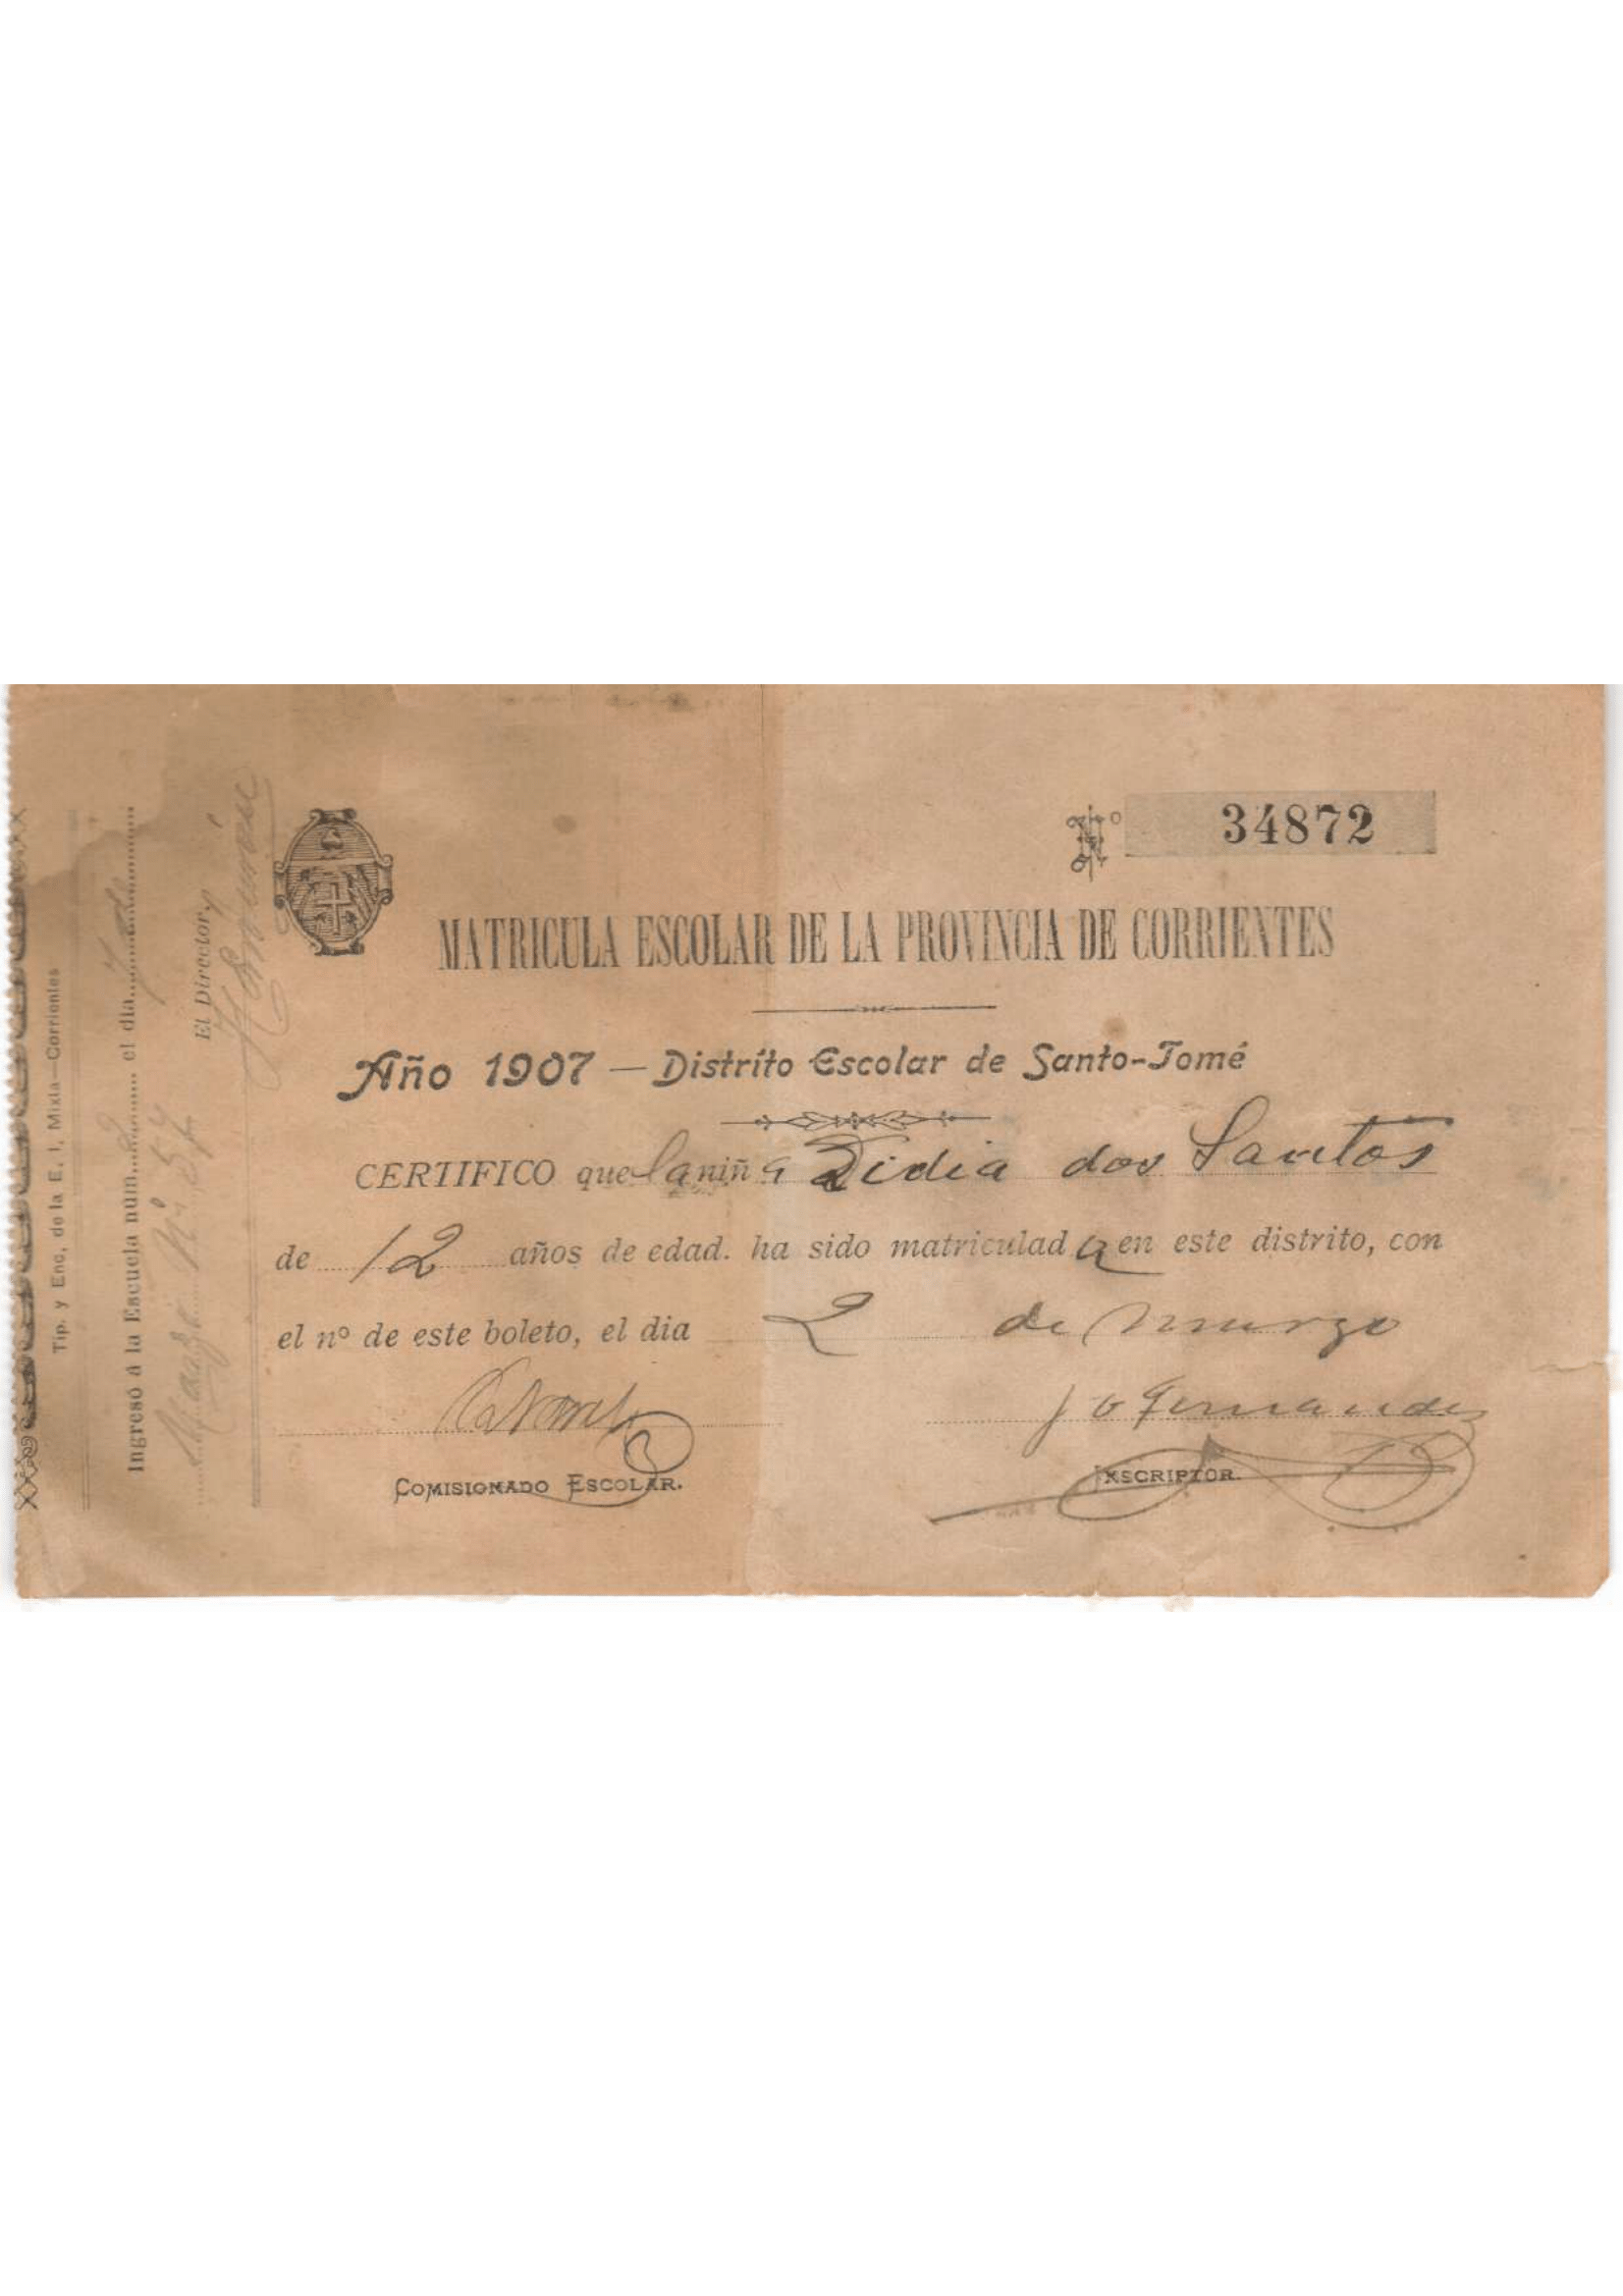 Tip. y Enc. de la E. I. Mixta—Corrientes
Ingresó á la Escuela núm. 2 el dia
El Director,
Nº 34872
MATRICULA ESCOLAR DE LA PROVINCIA DE CORRIENTES
Año 1907 — Distrito Escolar de Santo-Tomé
CERTIFICO que la niña Didia dos Santos
de 12 años de edad. ha sido matriculada en este distrito, con
el nº de este boleto, el dia 2 de marzo
Fernandez
COMISIONADO ESCOLAR.
INSCRIPTOR.